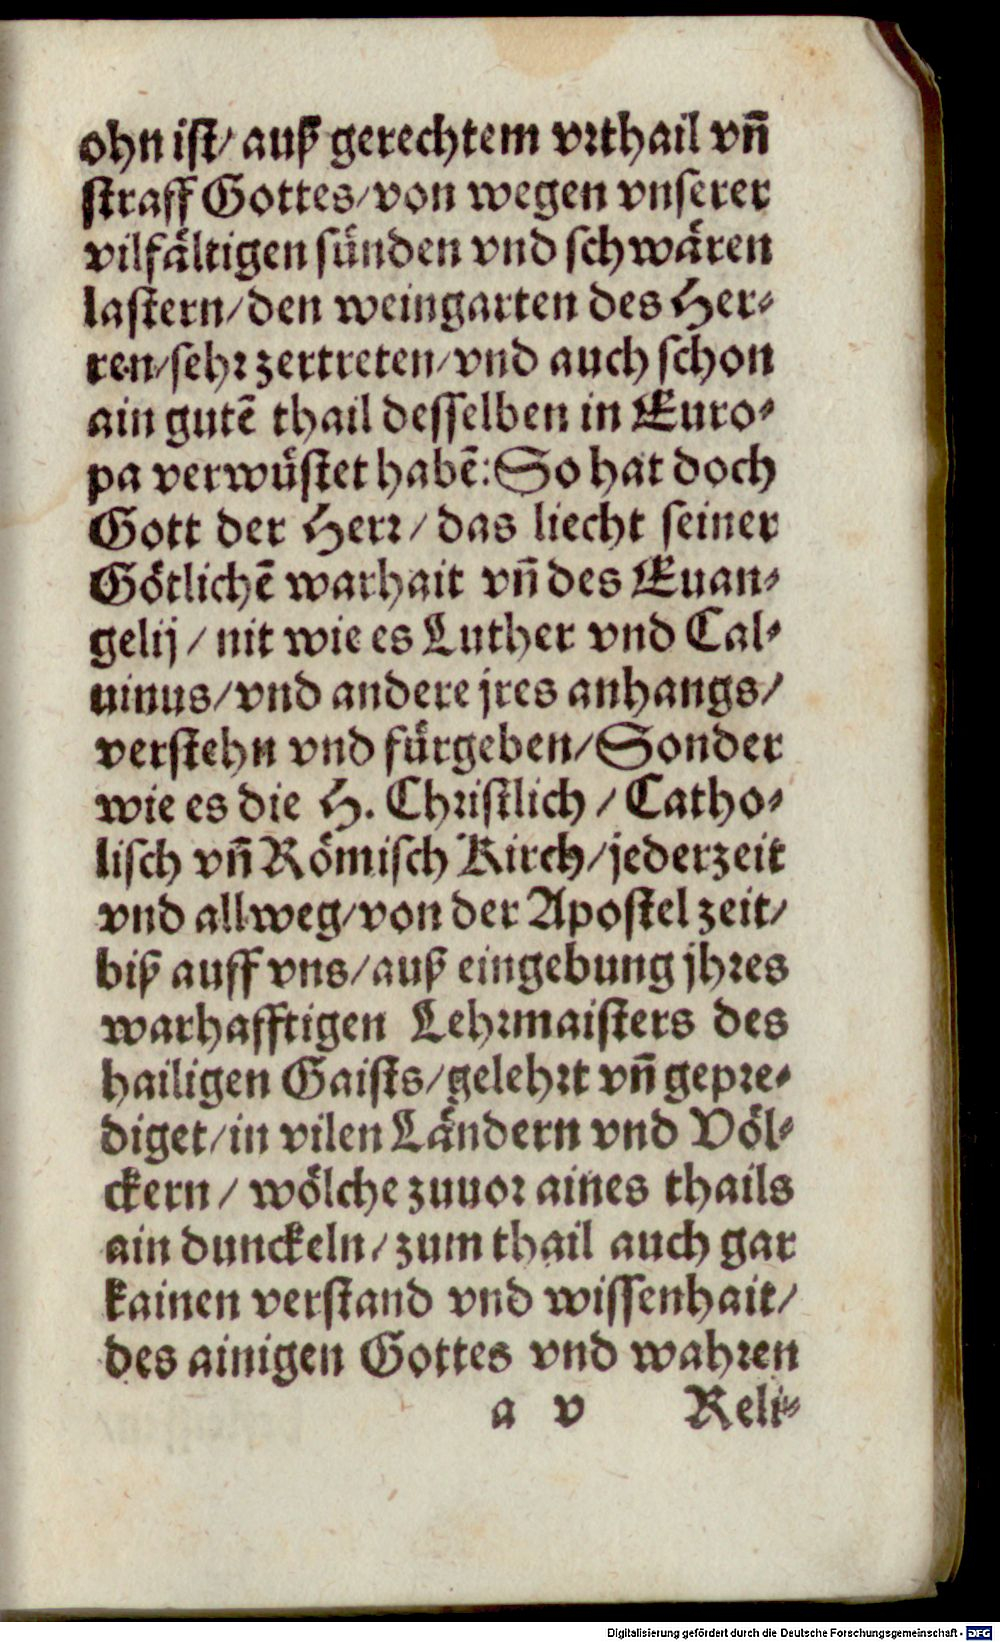 ohn ist/ auß gerechtem vrthail vñ
straff Gottes/von wegen vnserer
vilfältigen sünden vnd schwären
lastern/den weingarten des Her⸗
ren/sehr zertreten/vnd auch schon
ain gutē thail desselben in Euro⸗
pa verwüstet habē: So hat doch
Gott der Herr/ das liecht seiner
Götlichē warhait vñ des Euan⸗
gelij/ nit wie es Luther vnd Cal⸗
uinus/vnd andere jres anhangs/
verstehn vnd fürgeben/Sonder
wie es die H. Christlich/ Catho⸗
lisch vñ Römisch Kirch/jederzeit
vnd allweg/von der Apostel zeit/
biß auff vns/auß eingebung jhres
warhafftigen Lehrmaisters des
hailigen Gaists/gelehrt vñ gepre⸗
diget/in vilen Ländern vnd Völ⸗
ckern/ wölche zuuor aines thails
ain dunckeln/zum thail auch gar
kainen verstand vnd wissenhait/
des ainigen Gottes vnd wahren
a v Reli⸗
Digitalisierung gefördert durch die Deutsche Forschungsgemeinschaft - DFG